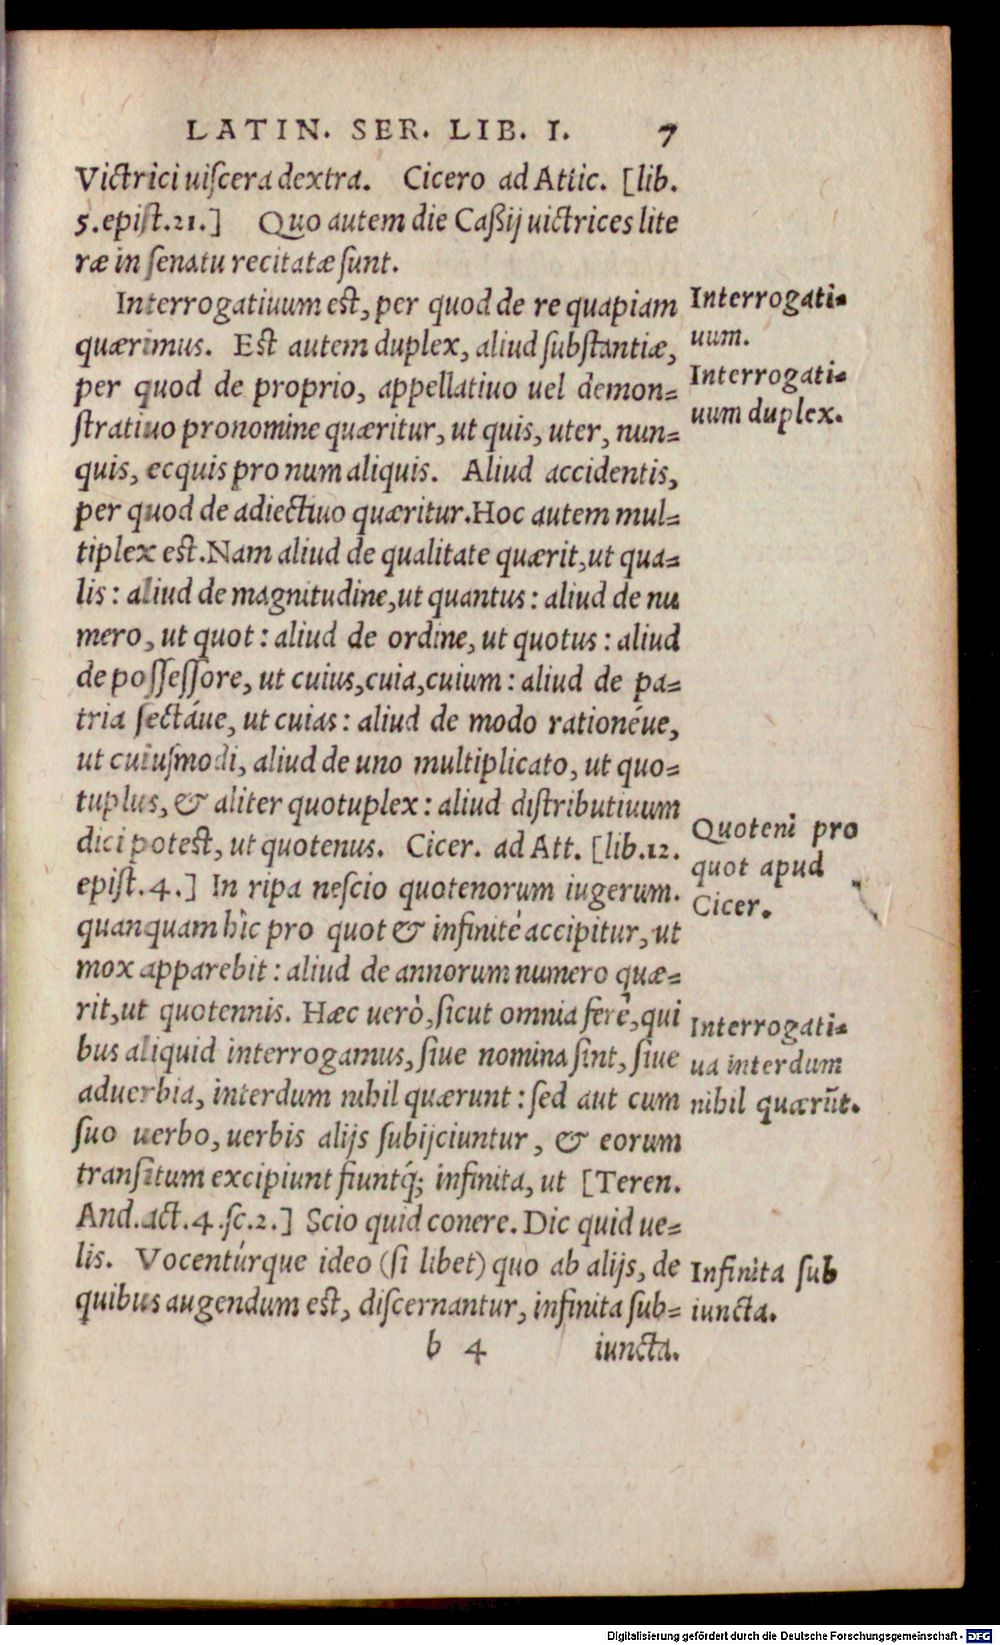 LATIN. SER. LIB. I. 7
Victrici uiſcera dextra. Cicero ad Attic. [lib.
5. epiſt. 21.] Quo autem die Caßij uictrices lite
ræ in ſenatu recitatæ ſunt.
Interrogatiuum est, per quod de re quapiam
quærimus. Est autem duplex, aliud ſubſtantiæ,
per quod de proprio, appellatiuo uel demon=
ſtratiuo pronomine quæritur, ut quis, uter, nun=
quis, ecquis pro num aliquis. Aliud accidentis,
per quod de adiectiuo quæritur. Hoc autem mul=
tiplex est. Nam aliud de qualitate quærit, ut qua=
lis: aliud de magnitudine, ut quantus: aliud de nu
mero, ut quot: aliud de ordine, ut quotus: aliud
de poſſeſſore, ut cuius, cuia, cuium: aliud de pa=
tria ſectáue, ut cuias: aliud de modo rationéue,
ut cuiuſmodi, aliud de uno multiplicato, ut quo=
tuplus, & aliter quotuplex: aliud diſtributiuum
dici potest, ut quotenus. Cicer. ad Att. [lib. 12.
epiſt. 4.] In ripa neſcio quotenorum iugerum.
quanquam hîc pro quot & infinitè accipitur, ut
mox apparebit: aliud de annorum numero quæ=
rit, ut quotennis. Hæc uerò, ſicut omnia ferè, qui
bus aliquid interrogamus, ſiue nomina ſint, ſiue
aduerbia, interdum nihil quærunt: ſed aut cum
ſuo uerbo, uerbis alijs ſubijciuntur, & eorum
tranſitum excipiunt fiuntq́; infinita, ut [Teren.
And. act. 4. ſc. 2.] Scio quid conere. Dic quid ue=
lis. Vocentúrque ideo (ſi libet) quo ab alijs, de
quibus augendum est, diſcernantur, infinita ſub=
b 4 iuncta.
Interrogati=
uum.
Interrogati=
uum duplex.
Quoteni pro
quot apud
Cicer.
Interrogati=
ua interdum
nihil quærũt.
Infinita ſub
iuncta.
Digitalisierung gefördert durch die Deutsche Forschungsgemeinschaft - DFG